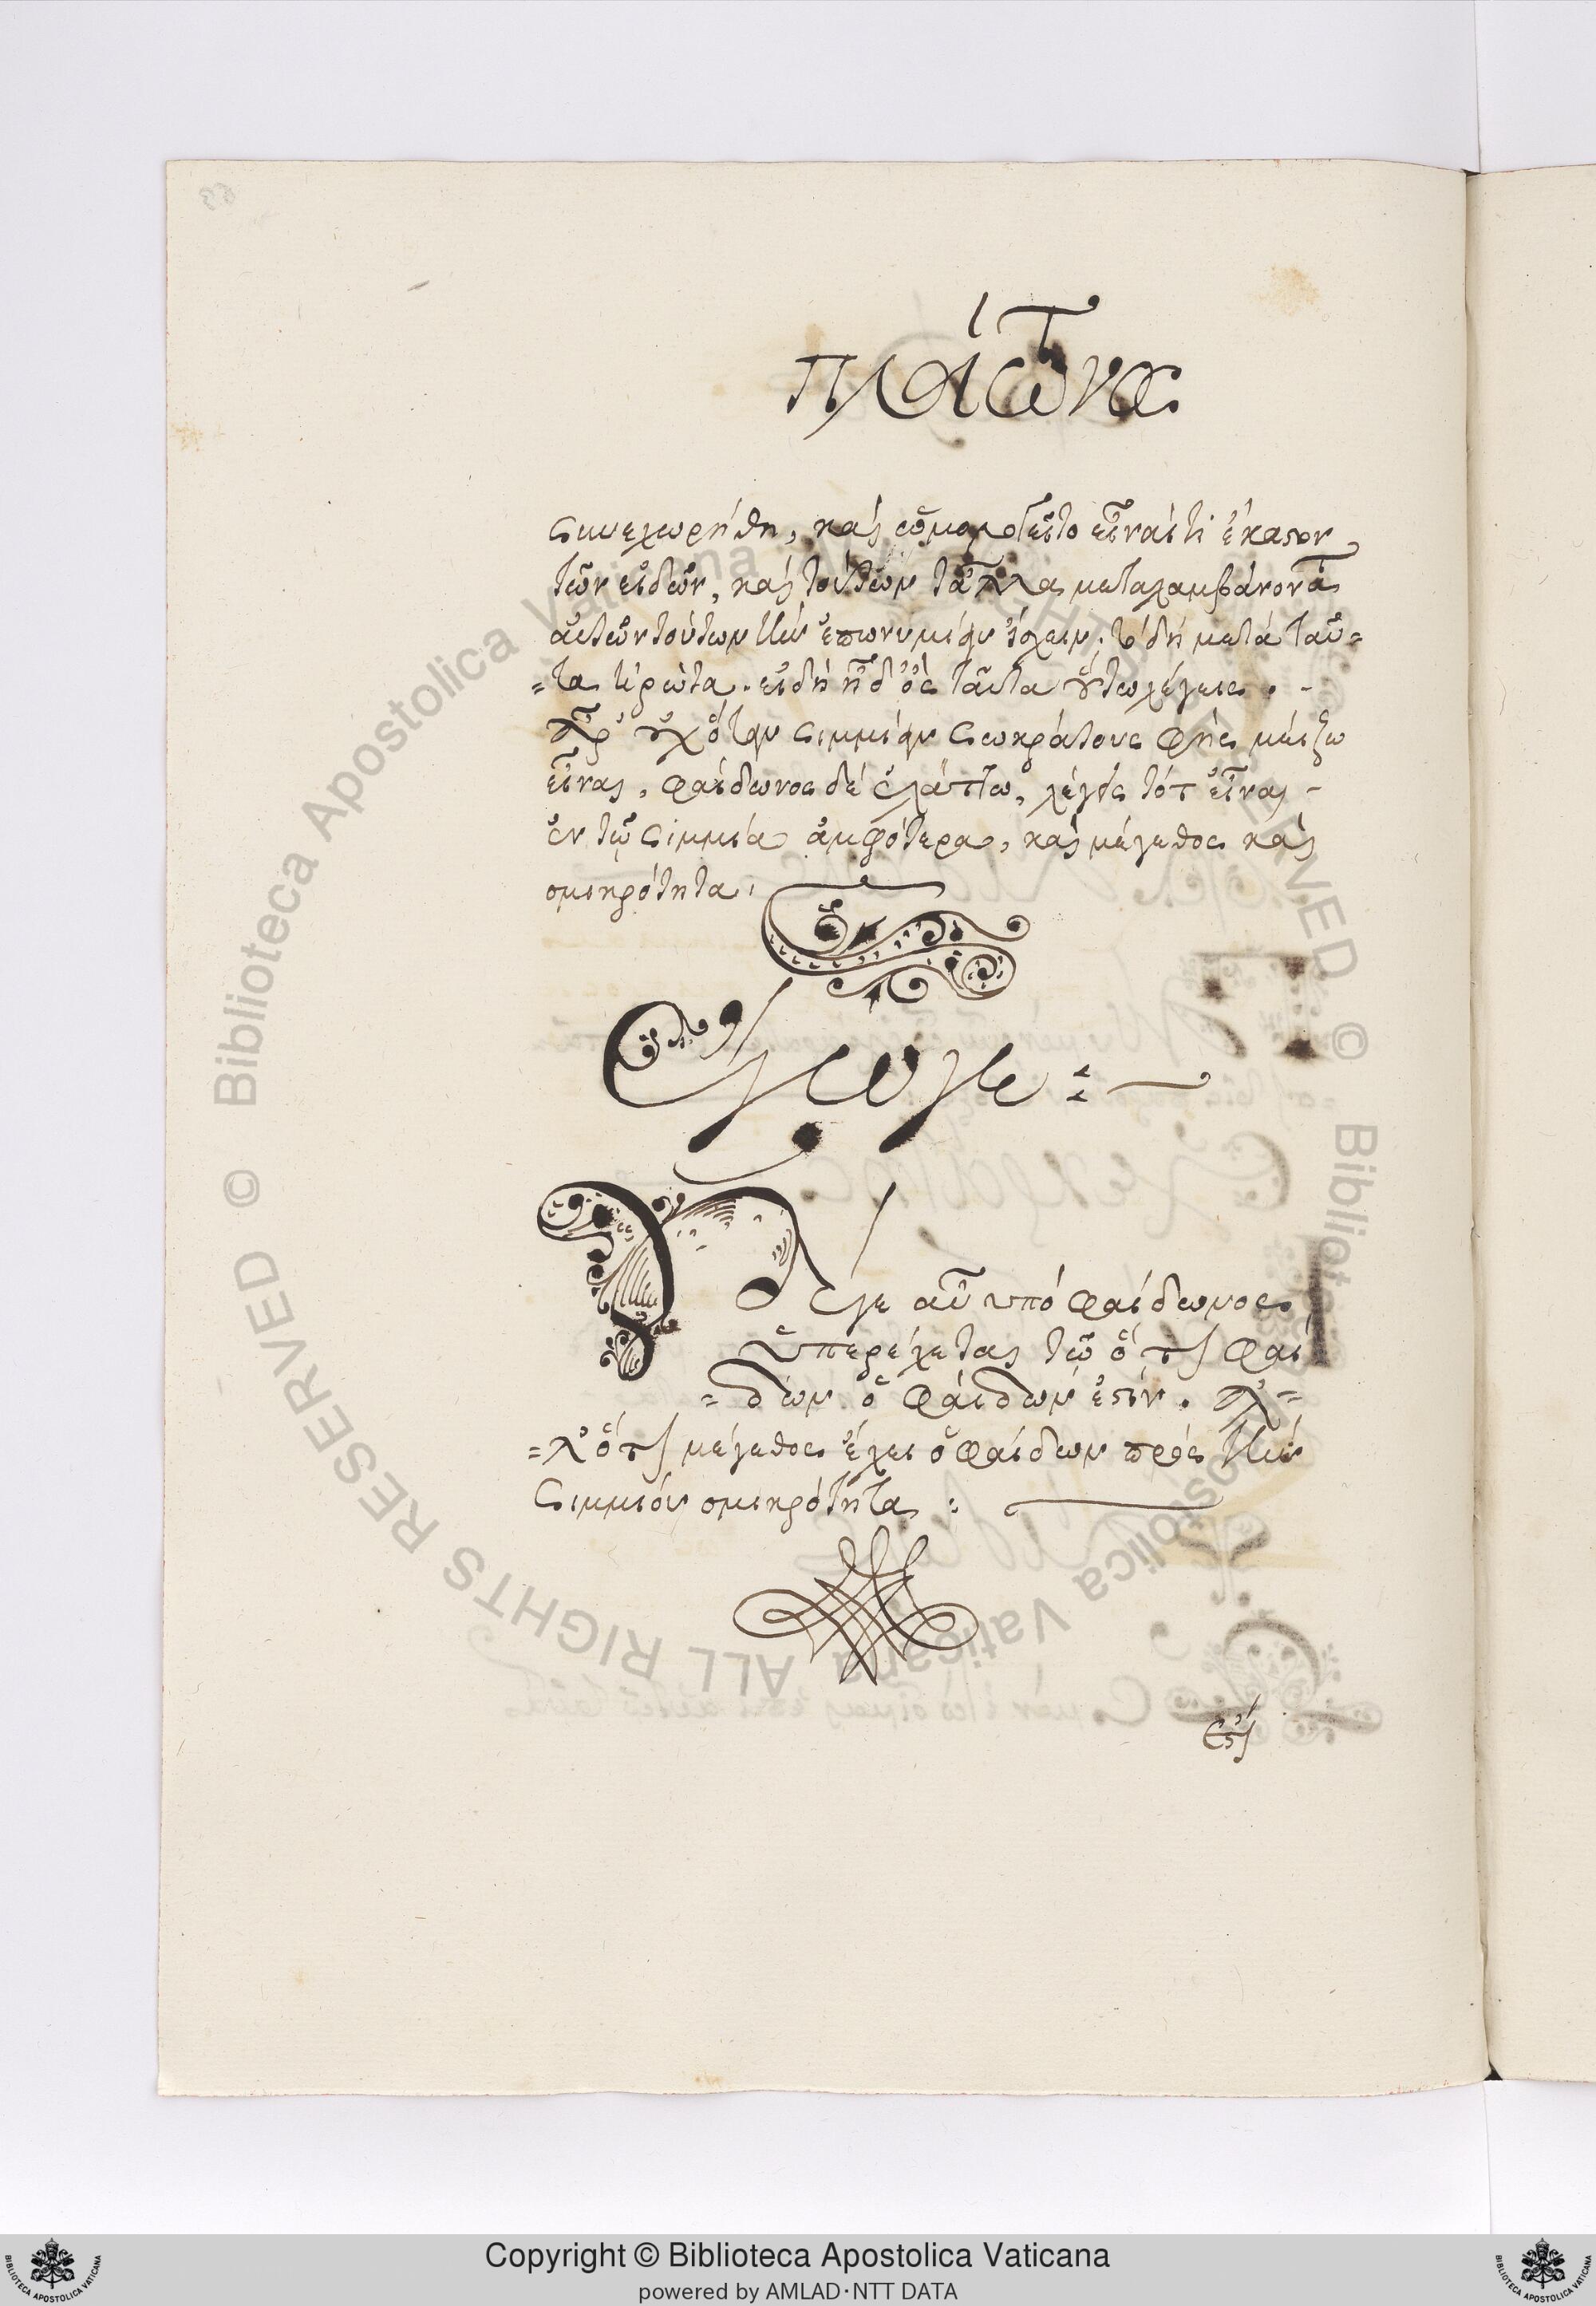 Πλάτωνος
συνεχωρήθη, καὶ ὡμολογεῖτο εἶναί τι ἕκαστον
τῶν εἰδῶν, καὶ τούτων τἆλλα μεταλαμβάνοντα
αὐτῶν τούτων τὴν ἐπωνυμίαν ἴσχειν. τὸ δὴ μετὰ ταῦ=
=τα ἠρώτα. εἰ δὴ ἦ δ' ὃς ταῦτα οὕτω λέγεις. -
Ἆρ' οὐχ ὅταν Σιμμίαν Σωκράτους φῇς μείζω
εἶναι, φαίδωνος δὲ ἐλάττω, λέγεις τότ' εἶναι -
ἐν τῷ Σιμμίᾳ ἀμφότερα, καὶ μέγεθος καὶ
σμικρότητα.
Ἔγωγε:
Οὐδέ γε αὖ ὑπὸ φαίδωνος
ὑπερέχεται τῷ ὅτι φαί
=δων ὁ φαίδων ἐστίν. ἀλ=
=λ' ὅτι μέγεθος ἔχει ὁ φαίδων πρὸς τὴν
Σιμμίου σμικρότητα :
ἔστι
Biblioteca Apostolica Vaticana ALL RIGHTS RESERVED ©
Copyright © Biblioteca Apostolica Vaticana
powered by AMLAD・NTT DATA
BIBLIOTECA APOSTOLICA VATICANA
BIBLIOTECA APOSTOLICA VATICANA